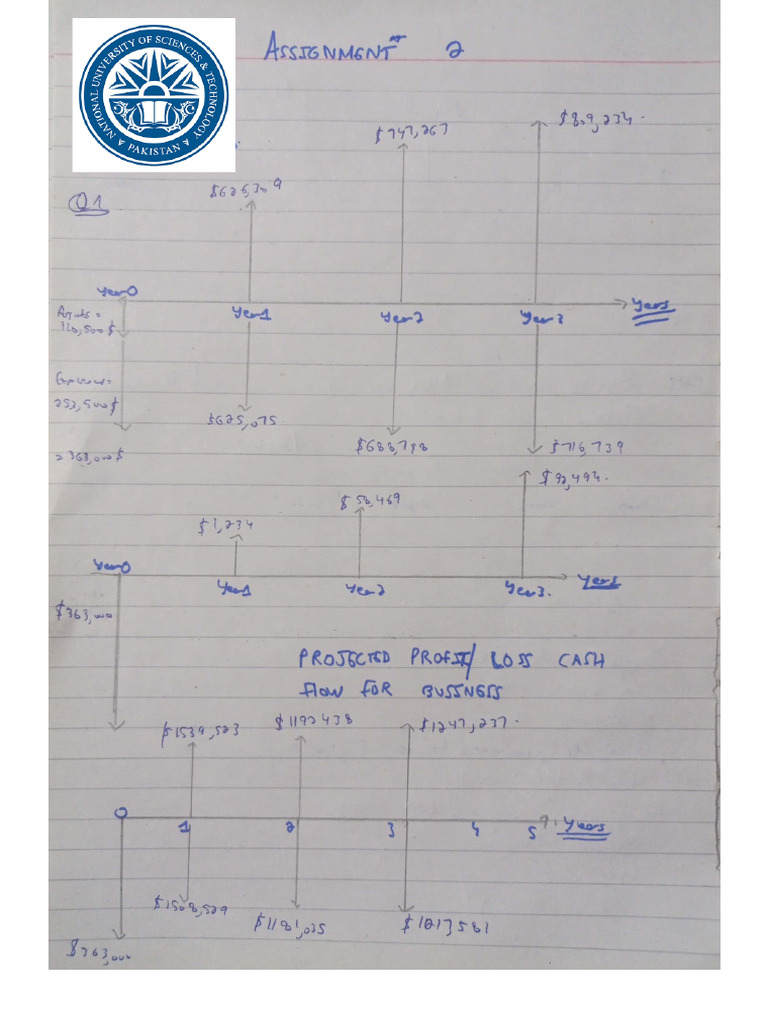 ASSIGNMENT # 2
NATIONAL UNIVERSITY OF SCIENCES & TECHNOLOGY
PAKISTAN
$747,267
$809,234.
$626,309
Q1
Year0
Year1
Year2
Year3
Years
110,500$
Expenses=
253,500$
$625,075
$688,798
$716,739
363,000$
$92,494.
$58,469
$1,234
Year0
Year1
Year2
Year3.
Years
$363,000
PROJECTED PROFIT/LOSS CASH
FLOW FOR BUSSINESS
$1539,523
$1192438
$1247,237.
0
1
2
3
4
5
Years
$1508,529
$1181,035
$1217581
$363,000